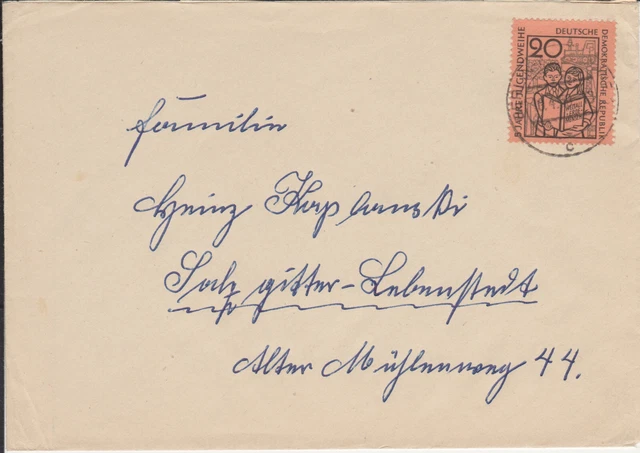 Familie
Heinz Kaplanski
Salzgitter-Lebenstedt
Alter Mühlenweg 44.
5 JAHRE JUGENDWEIHE
DEUTSCHE
DEMOKRATISCHE REPUBLIK
20
c